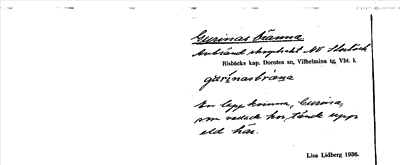 Gurinas bränna
Avbränd skogstrakt NV Storbäck
Risbäcks kap. Dorotea sn, Vilhelmina tg, Vbt. l.
gurinasbräna
En lapp kvinna, Gurina,
som vallade här, tände upp
eld här.
Lisa Lidberg 1936.